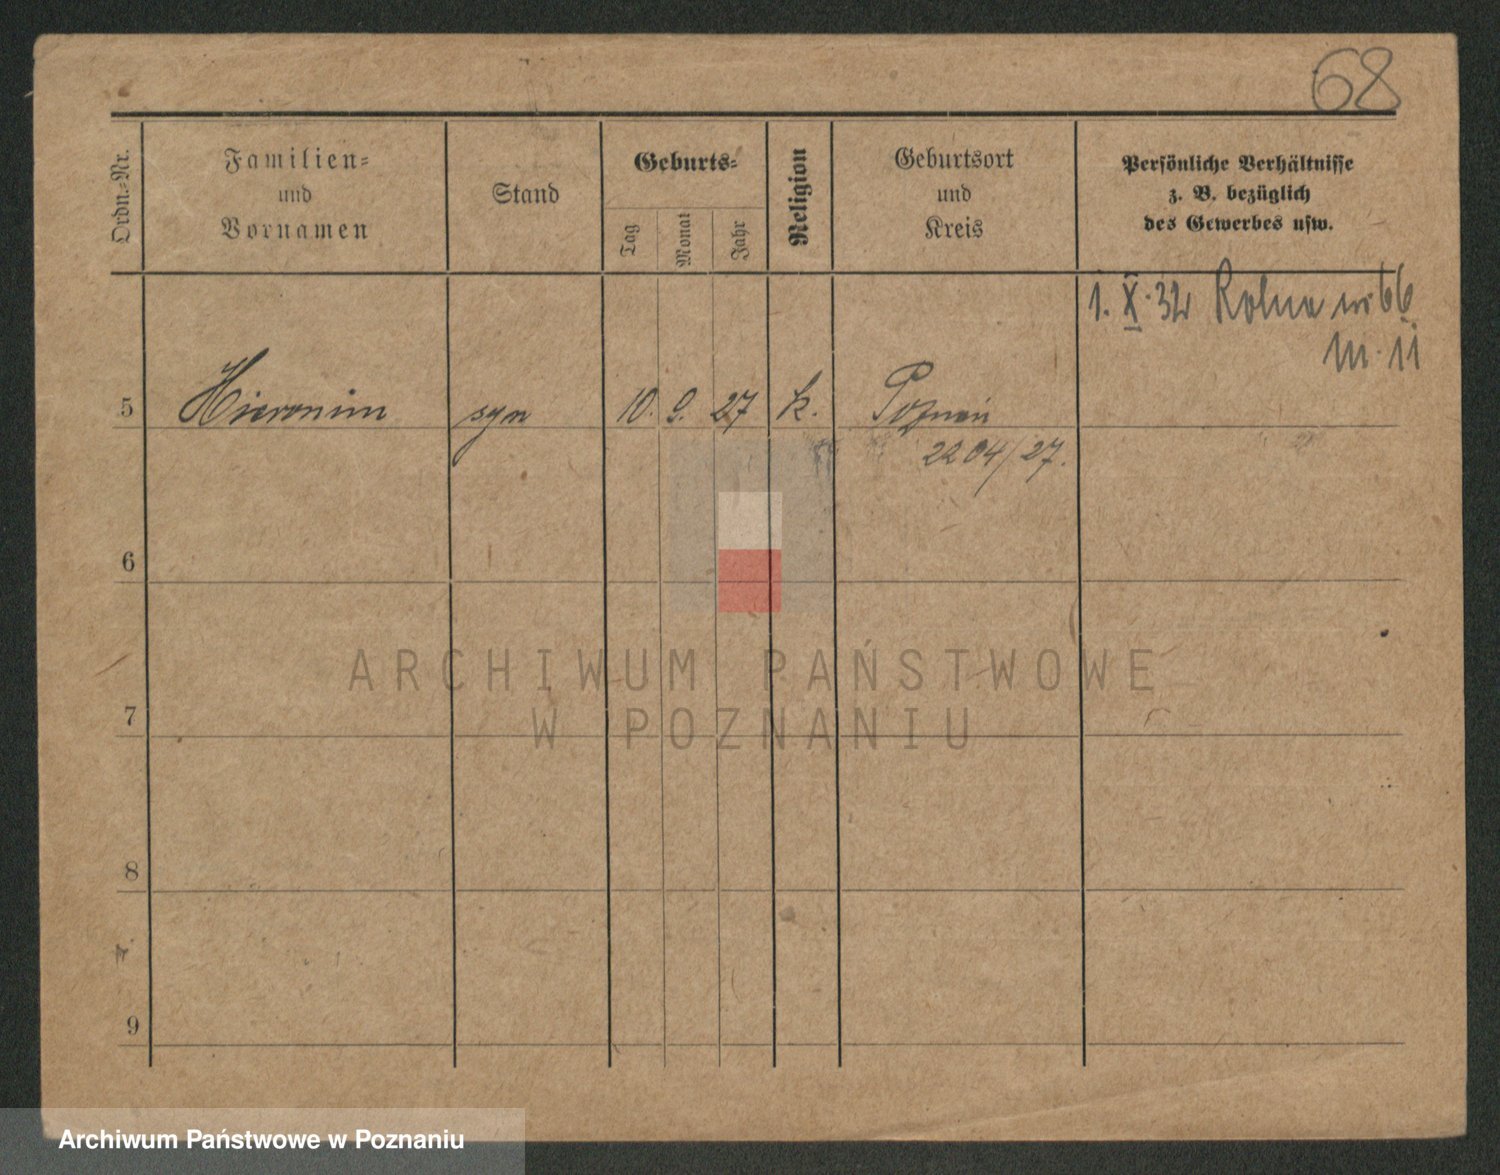 68
Ordn.-Nr.
Familien-
und
Vornamen
Stand
Geburts-
Tag
Monat
Jahr
Religion
Geburtsort
und
Kreis
Persönliche Verhältnisse
z. B. bezüglich
des Gewerbes usw.
1. X. 32 Rolna nr 66
m. 11
5 Hieronim syn 10. 9. 27 k. Poznań
2204/27.
6
7
8
9
ARCHIWUM PAŃSTWOWE
W POZNANIU
Archiwum Państwowe w Poznaniu